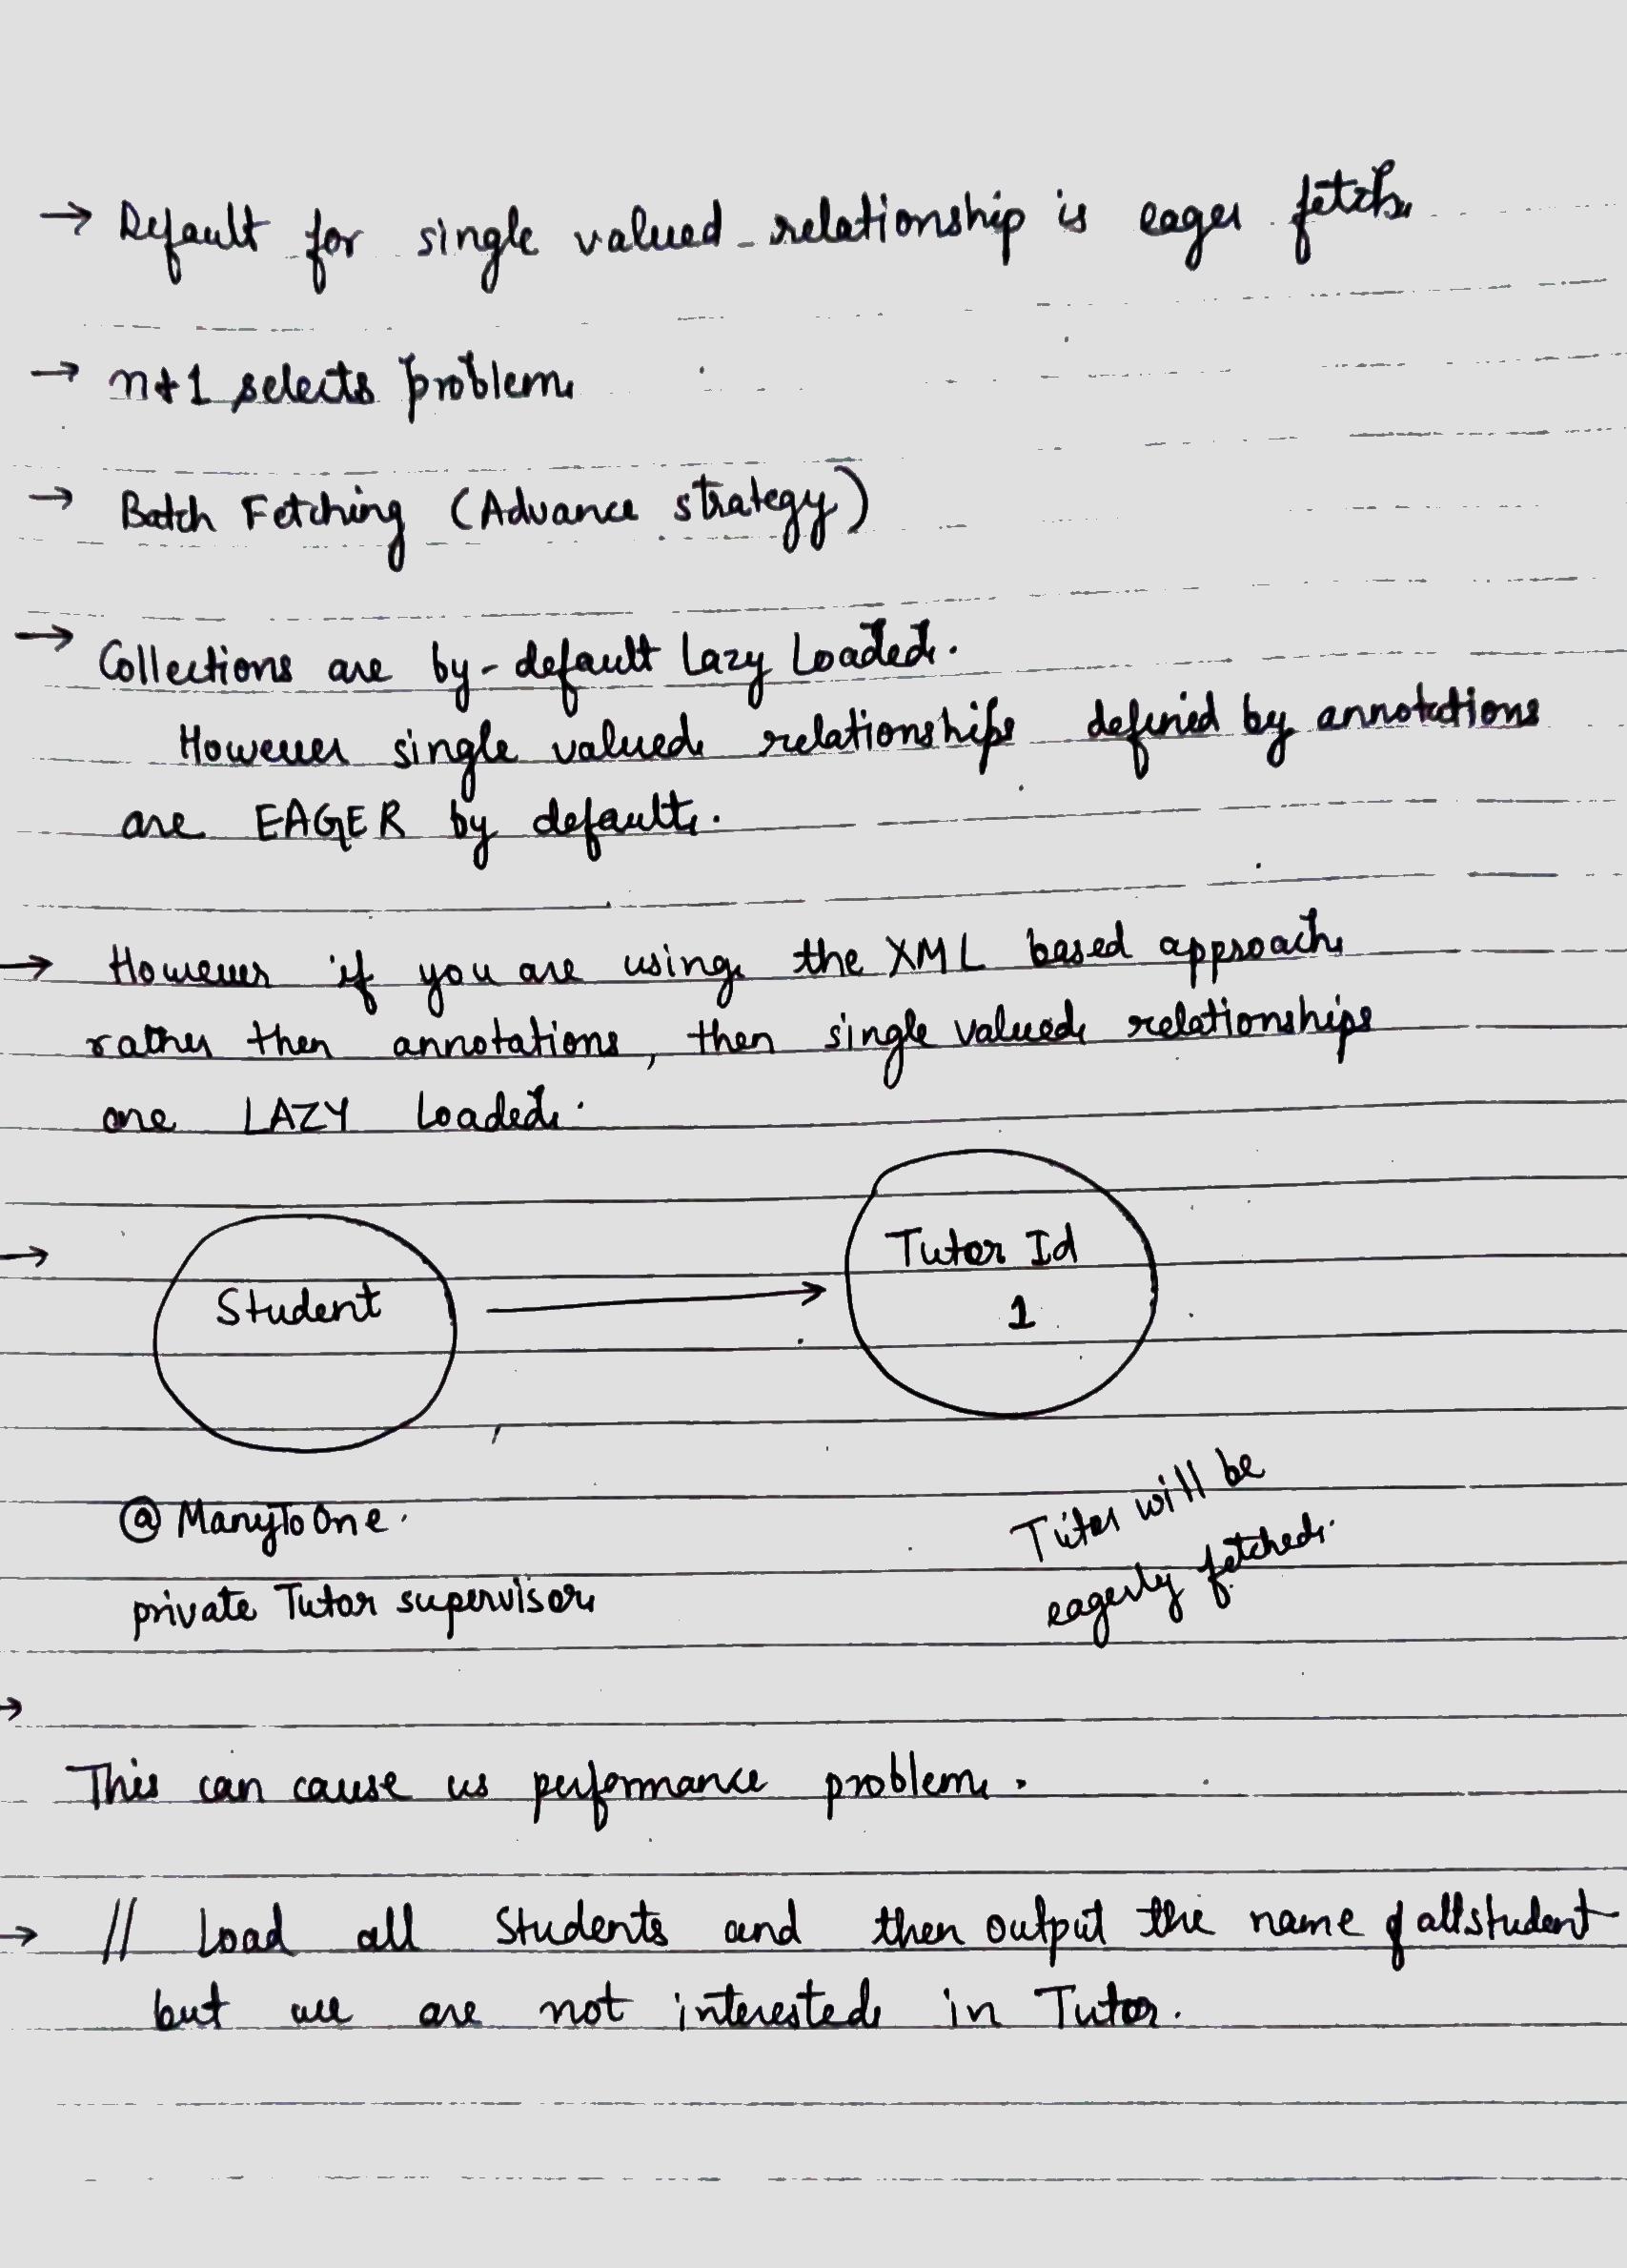 → Default for single valued relationship is eager fetch.
→ n+1 selects problem
→ Batch Fetching (Advance strategy)
→ Collections are by-default Lazy Loaded.
However single valued relationships defined by annotations
are EAGER by default.
→ However if you are using the XML based approach
rather then annotations, then single valued relationships
are LAZY Loaded.
→ Student → Tutor Id
1
@ManyToOne.
private Tutor supervisor
Tutor will be
eagerly fetched.
→
This can cause us performance problem.
→ // Load all Students and then output the name of all student
but we are not interested in Tutor.